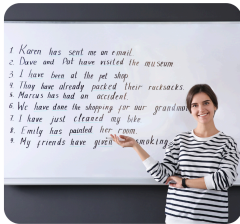 1. Karen has sent me an email.
2. Dave and Pat have visited the museum
3. I have been at the pet shop
4. They have already packed their rucksacks.
5. Marcus has had an accident.
6. We have done the shopping for our grandma
7. I have just cleaned my bike.
8. Emily has painted her room.
9. My friends have given smoking.